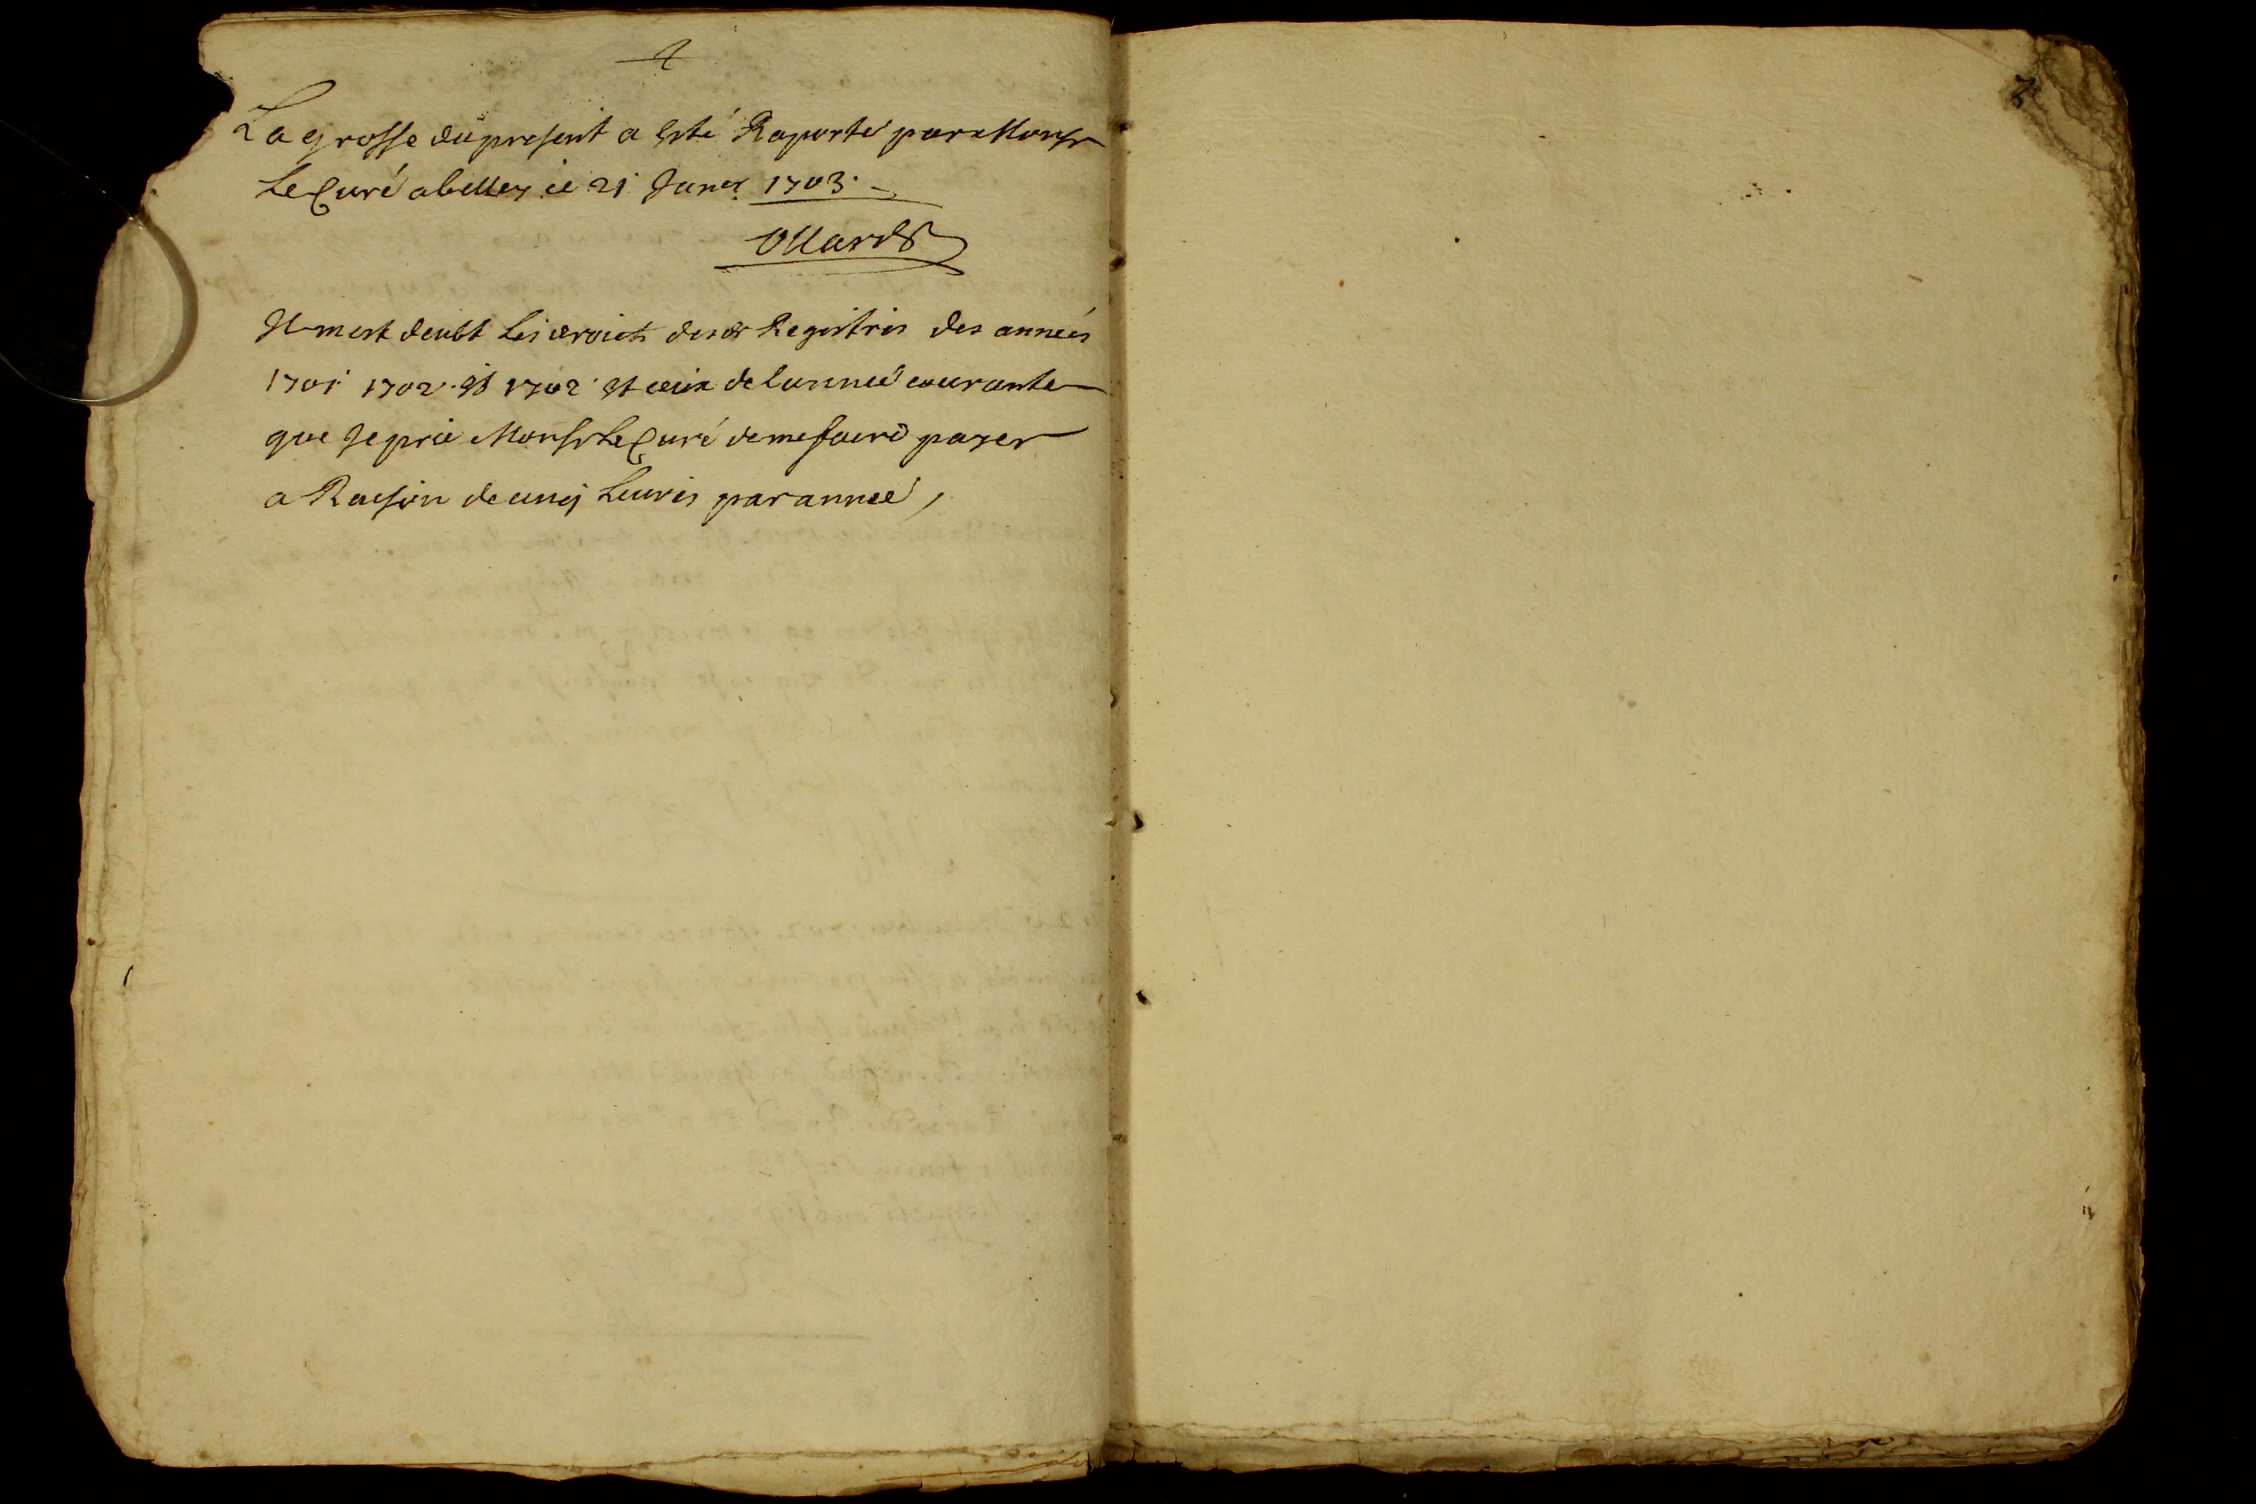 La grosse du present a esté Raporté par Monsr
Le Curé a belley ce 21 Janer 1703.
Il mest deubt Les droicts desdts Registres des années
1701 1702 et 1702 et ceux de lannée courante
que Je prie Monsr Le Curé de me faire payer
a Raison de cinq Livres par année,